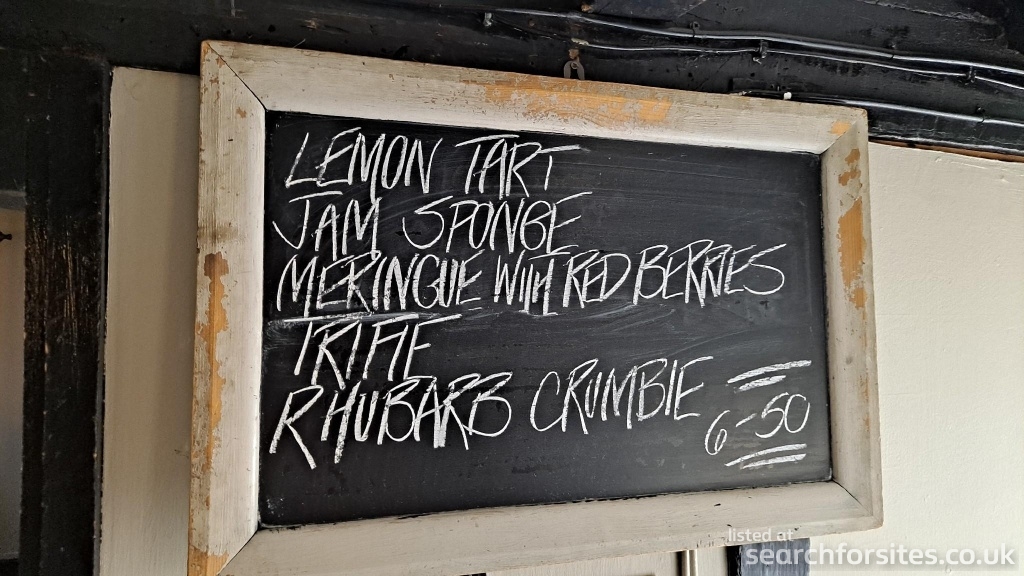 LEMON TART
JAM SPONGE
MERINGUE WITH RED BERRIES
TRIFLE
RHUBARB CRUMBLE
6-50
listed at
searchforsites.co.uk